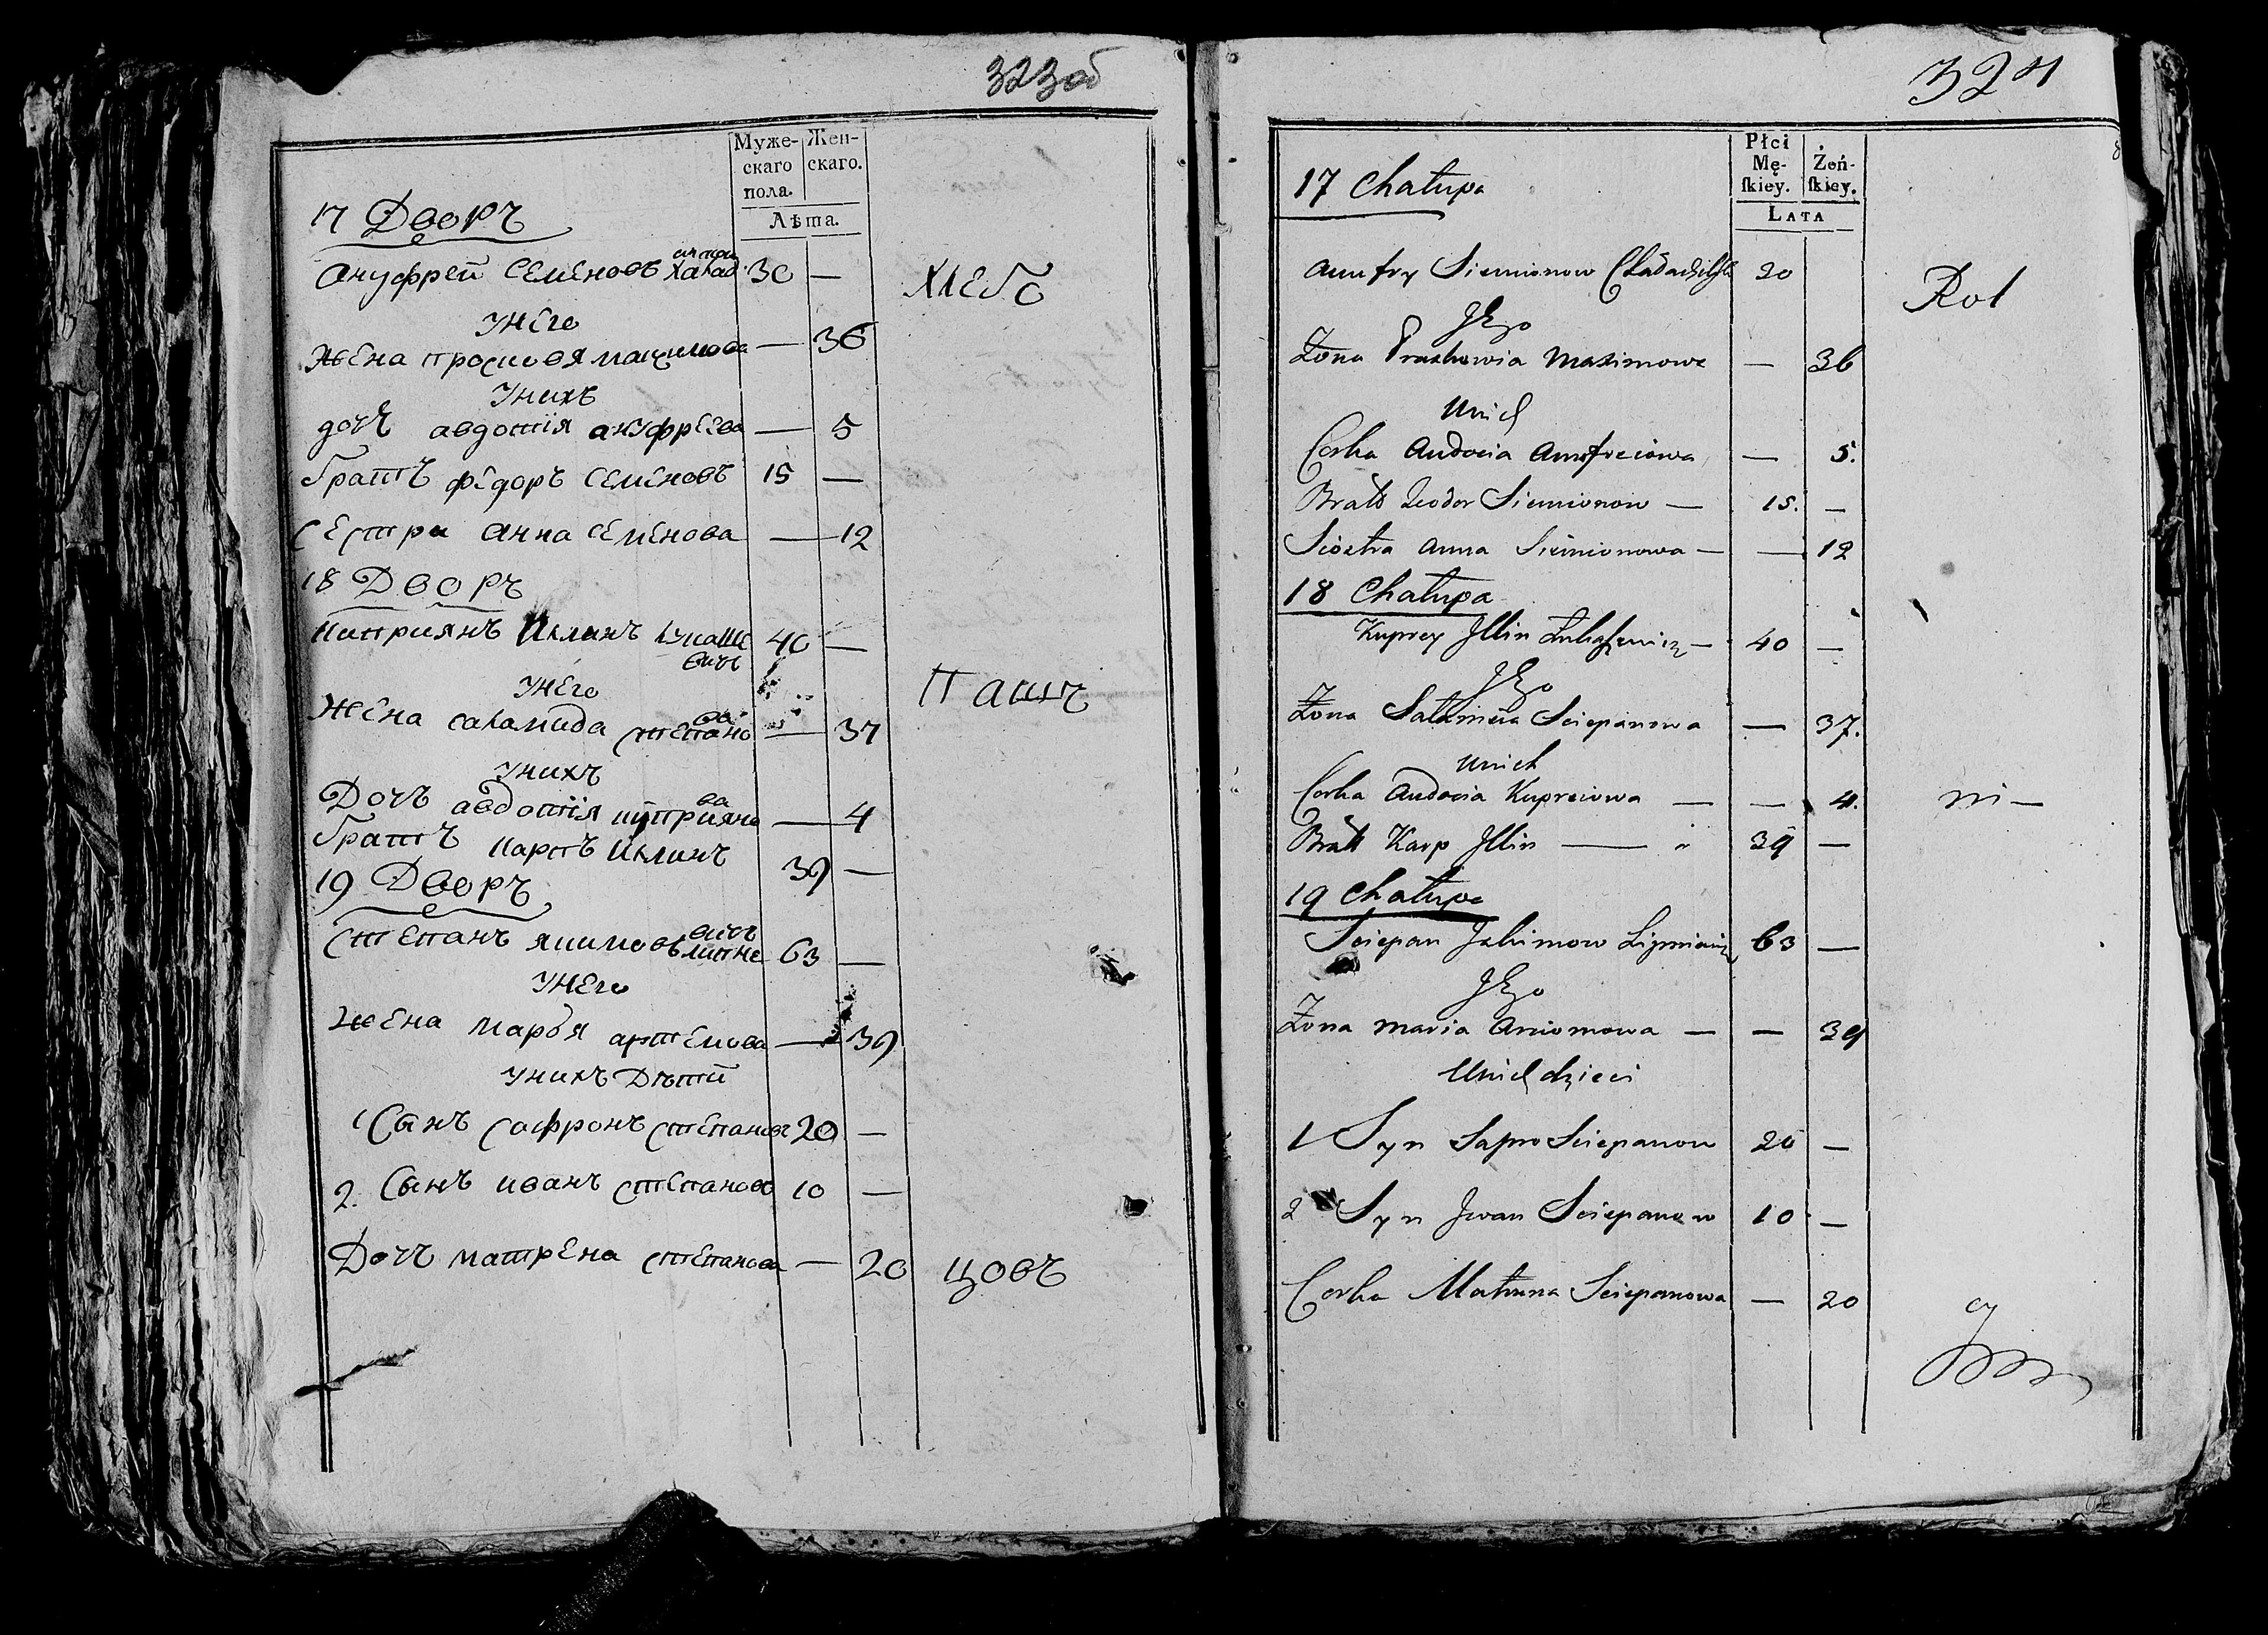 323 об
Муже-
скаго
пола.
Жен-
скаго.
Лѣта.
17 Дворъ
Ануфрей Семеновъ 30 —
хлебо
У него
Жена Просковя Мацимова — 36
У нихъ
дочъ авдотія ануфреева — 5
Братъ Федоръ Семеновъ 15 —
Сестра Анна Семенова — 12
18 Дворъ
Киприянъ Илинъ Лукаше
вичъ 40 —
У него
пашъ
Жена Саламида Степано
ва — 37
У нихъ
Дочъ авдотія киприяно
ва — 4
Братъ Карпъ Илинъ 39 —
19 Дворъ
Степанъ Якимовъ Липне
вичъ 63 —
У него
Жена Марья артемова — 39
У нихъ Дѣти
1 Сынъ Софронъ Степановъ 20 —
2. Сынъ Иванъ Степановъ 10 —
Дочъ Матрена Степанова — 20
цовъ
324
Płci
Mę-
ſkiey.
Żeń-
ſkiey.
LATA
17 Chałupa
Anufry Siemionow 20
Rol
Jego
Żona Praskowia Maximowa — 36
U nich
Corka Audocia Anufreiowa — 5.
Brat Teodor Siemionow — 15. —
Siostra Anna Siemionowa — — 12
18 Chałupa
Kuprey Illin Łukaszewicz — 40 —
Jego
Żona Sałamieia Sciepanowa — 37.
U nich
Corka Audocia Kupreiowa — — 4.
ni —
Brat Karp Illin — 39 —
19 Chałupa
Sciepan Jakimow Lipniewicz 63 —
Jego
Żona Maria Arciomowa — — 39
U nich dzieci
1 Syn Sapro Sciepanow 20 —
2 Syn Jwan Sciepanow 10 —
Corka Matruna Sciepanowa — 20
cy